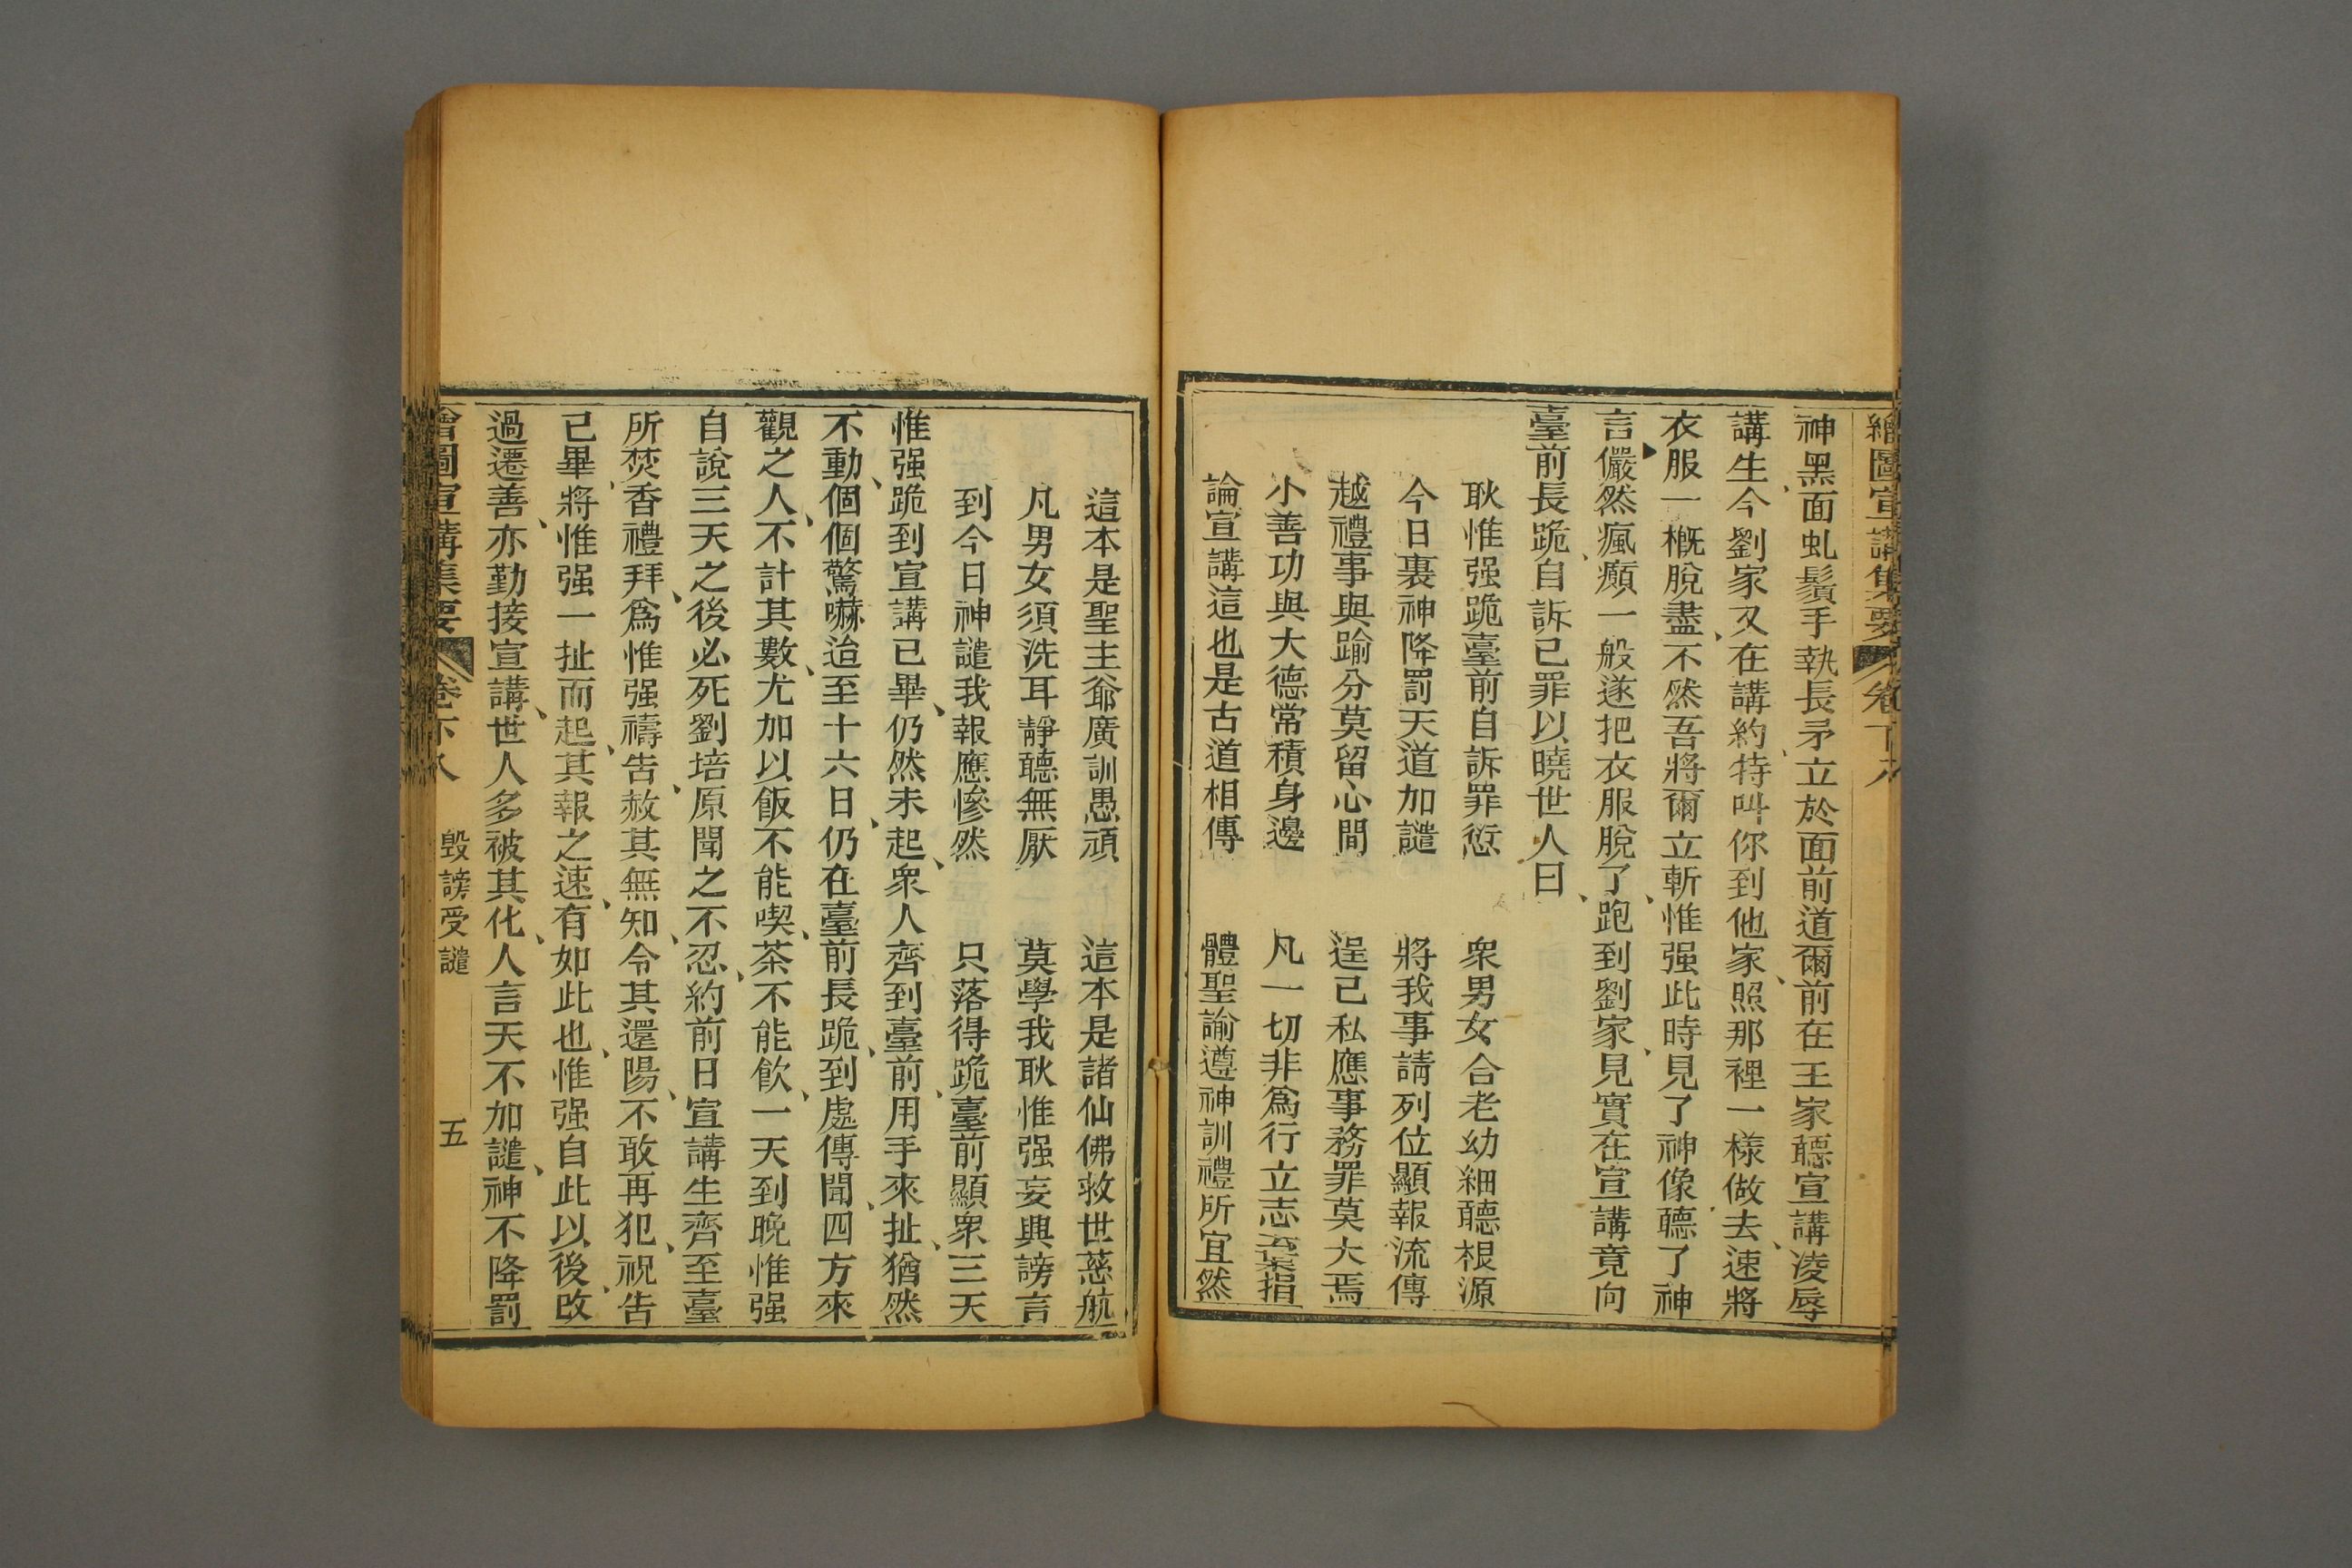 繪圖宣講集要 卷下八
神黑面虬鬚手執長矛立於面前道爾前在王家聽宣講凌辱
講生今劉家又在講約特叫你到他家照那裡一樣做去速將
衣服一概脫盡不然吾將爾立斬惟强此時見了神像聽了神
言儼然瘋癲一般遂把衣服脫了跑到劉家見實在宣講竟向
臺前長跪自訴已罪以曉世人曰
耿惟强跪臺前自訴罪愆 衆男女合老幼細聽根源
今日裏神降罰天道加譴 將我事請列位顯報流傳
越禮事與踰分莫留心間 逞己私應事務罪莫大焉
小善功與大德常積身邊 凡一切非爲行立志棄捐
論宣講這也是古道相傳 體聖諭遵神訓禮所宜然
這本是聖主爺廣訓愚頑 這本是諸仙佛救世慈航
凡男女須洗耳靜聽無厭 莫學我耿惟强妄興謗言
到今日神譴我報應慘然 只落得跪臺前顯衆三天
惟强跪到宣講已畢仍然未起衆人齊到臺前用手來扯猶然
不動個個驚嚇迨至十六日仍在臺前長跪到處傳聞四方來
觀之人不計其數尤加以飯不能喫茶不能飲一天到晚惟强
自說三天之後必死劉培原聞之不忍約前日宣講生齊至臺
所焚香禮拜爲惟强禱告赦其無知令其還陽不敢再犯祝告
已畢將惟强一扯而起其報之速有如此也惟强自此以後改
過遷善亦勤接宣講世人多被其化人言天不加譴神不降罰
繪圖宣講集要 卷下八 毀謗受譴 五